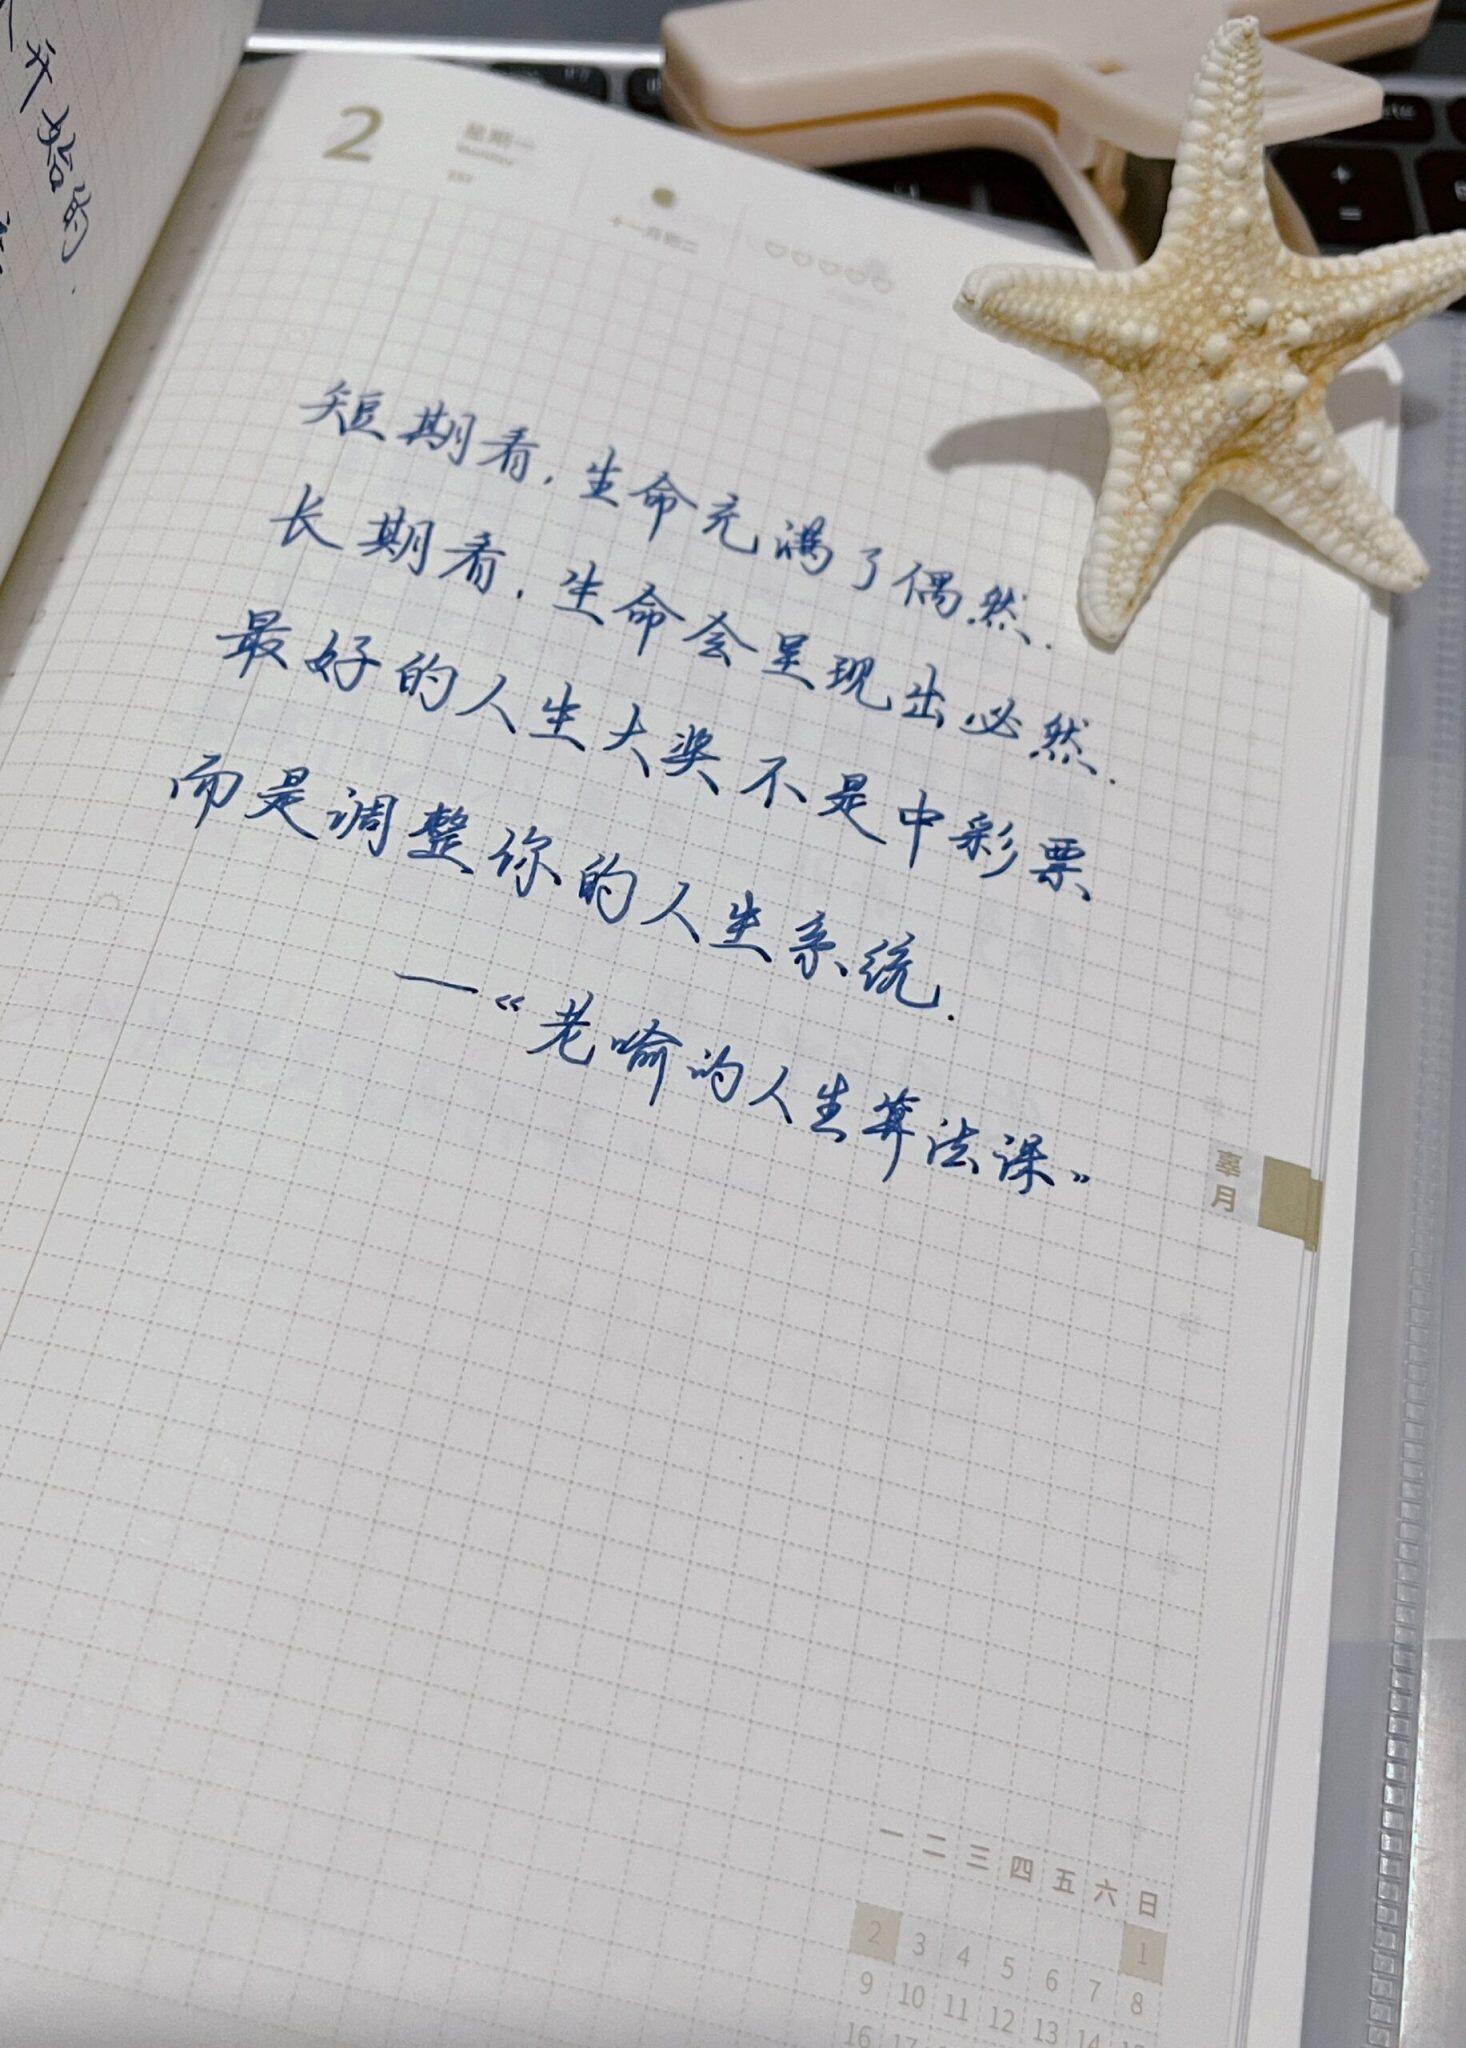 开始的
2
星期一
Monday
十一月初二
短期看.生命充满了偶然.
长期看.生命会呈现出必然.
最好的人生大奖不是中彩票
而是调整你的人生系统.
—“老喻的人生算法课”
辜月
一 二 三 四 五 六 日
2 3 4 5 6 7 1
9 10 11 12 13 14 8
16 17